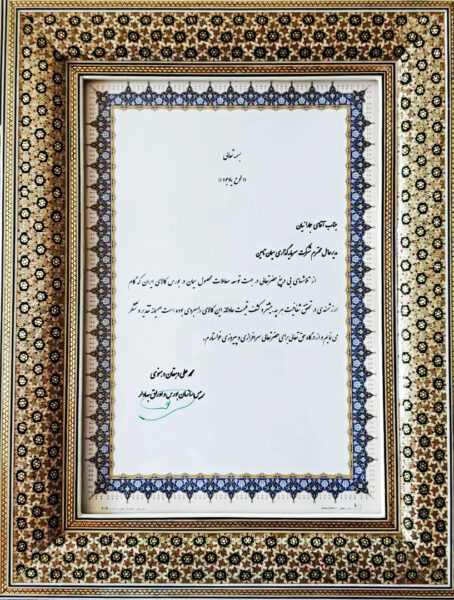 بسمه تعالی
«لوح یادبود»
جناب آقای
مدیرعامل محترم شرکت سرمایه گذاری سیمان تامین
از تلاشهای بی دریغ حضرتعالی در جهت توسعه معاملات محصول سیمان در بورس کالای ایران که گام
ارزشمندی در تحقق شفافیت هر چه بیشتر و کشف قیمت عادلانه این کالای راهبردی بوده است صمیمانه تقدیر و تشکر
می نمایم و از درگاه حق تعالی برای حضرتعالی سرافرازی و پیروزی خواستارم.
محمد علی دهقان دهنوی
رییس سازمان بورس و اوراق بهادار